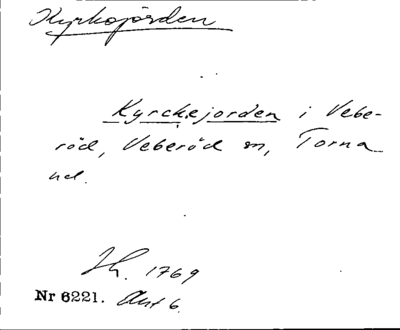 Kyrkojorden
Kyrckejorden i Vebe-
röd, Veberöd sn, Torna
hd.
1769
Nr 6221. Akt 6.